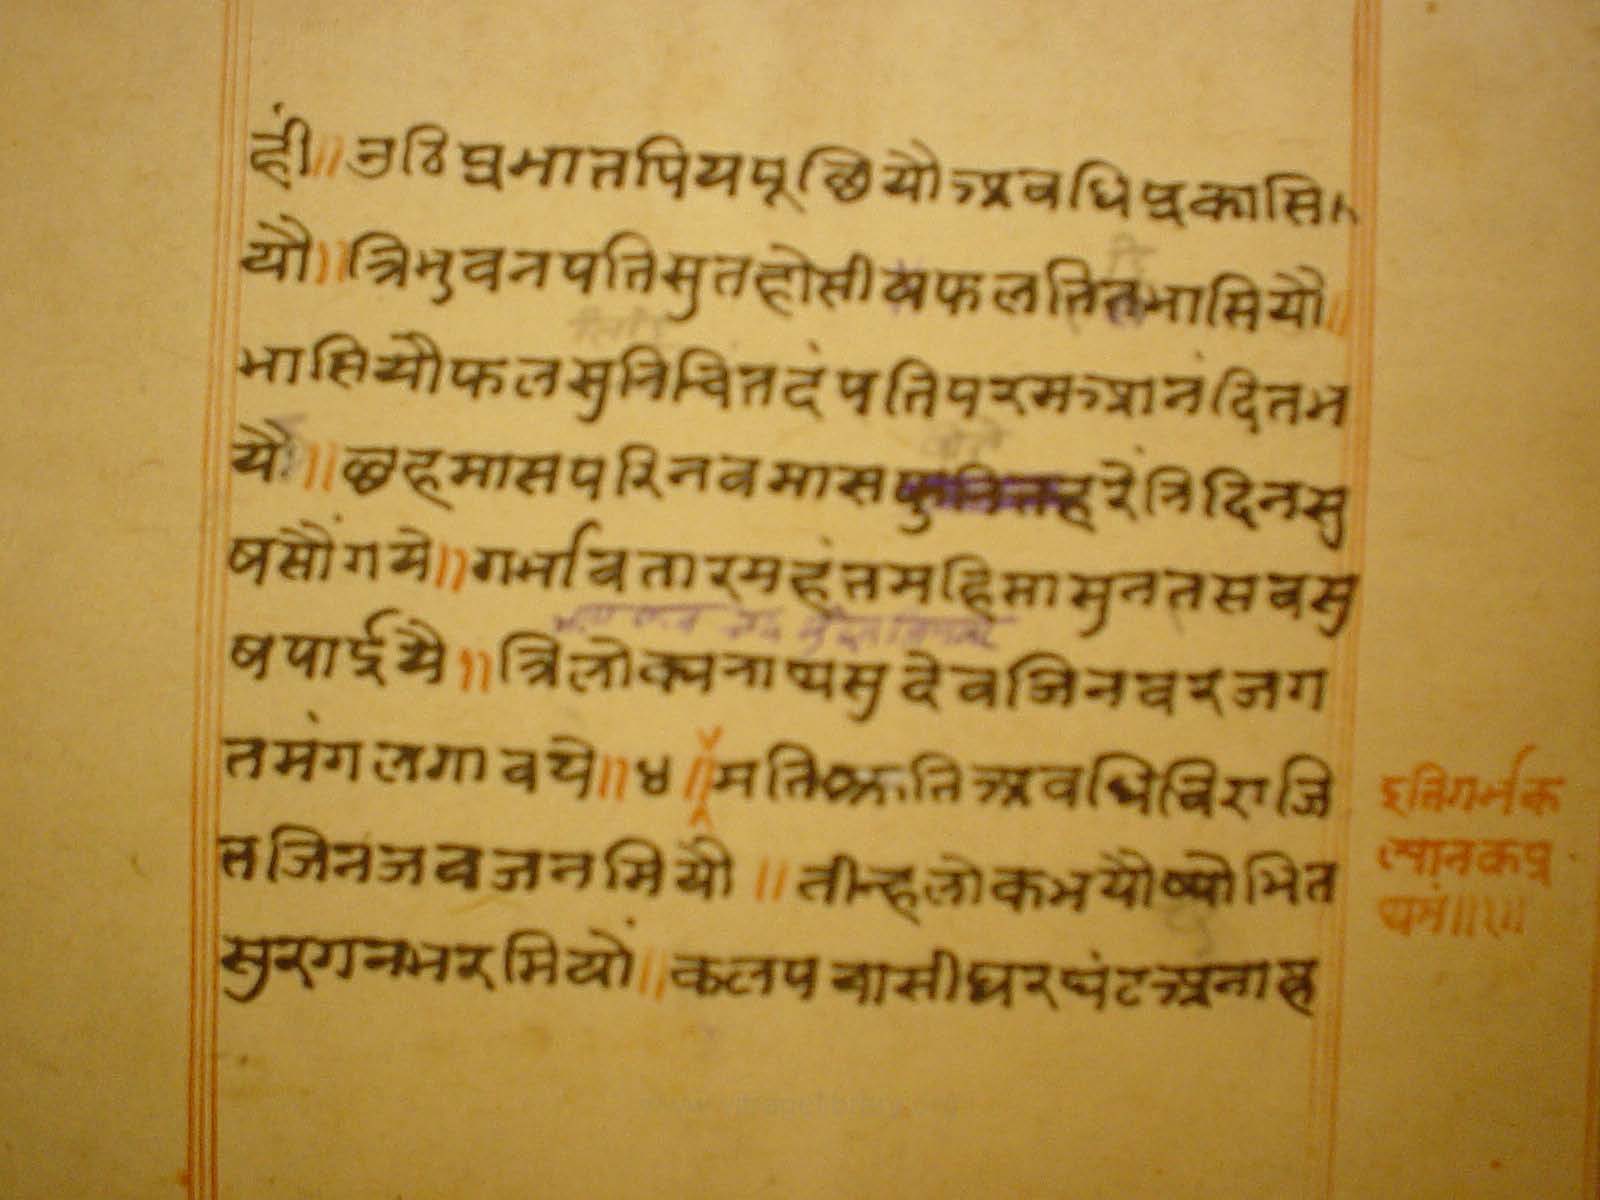 हीं॥ उठि प्रभात पिय पूछियौ अवधि प्रकासि
यौ॥ त्रिभुवनपति सुत होसी फल ति भासियौ॥
भासियौ फल सुनि चिंत दंपति परम आनंदित भ
ये॥ छहमास परि नवमास रें नि दिन सु
ष सौं गमे॥ गर्भावतार महंत महिमा सुनत सब सु
ष पाईयै॥ त्रिलोक्यनाथ सु देव जिनवर जग
त मंगल गावये॥४॥ मति श्रुति अवधि विराजि
त जिन जब जनमियौ॥ तीन्ह लोक भयौ षोभित
सुरगन भरमियों॥ कलपवासी घर घंट अनाह
इति गर्भ क
ल्यानक प्र
थमं॥१॥